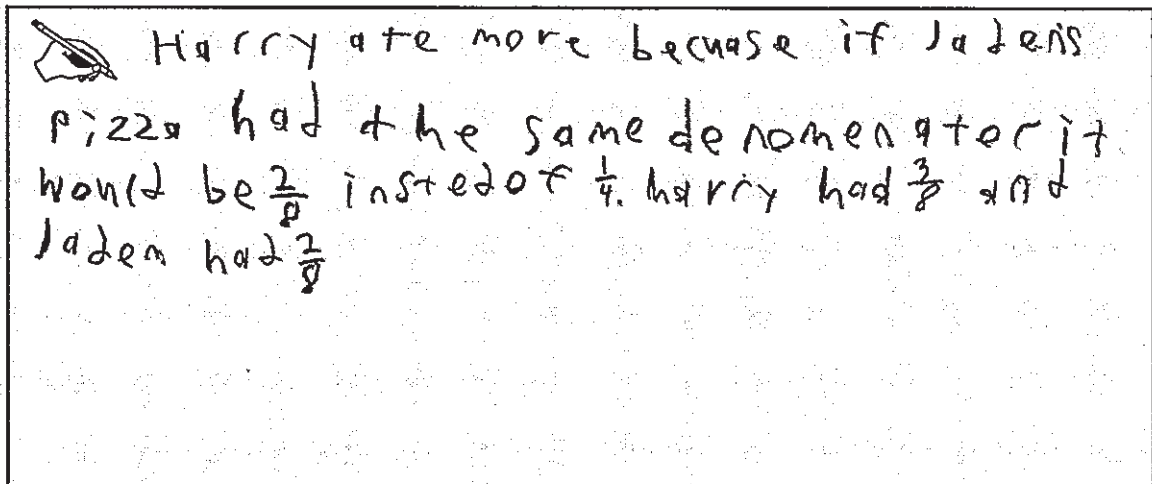 Harry ate more becuase if Jaden's
pizza had the same denomenator it
would be 2/8 insted of 1/4. harry had 3/8 and
Jaden had 2/8